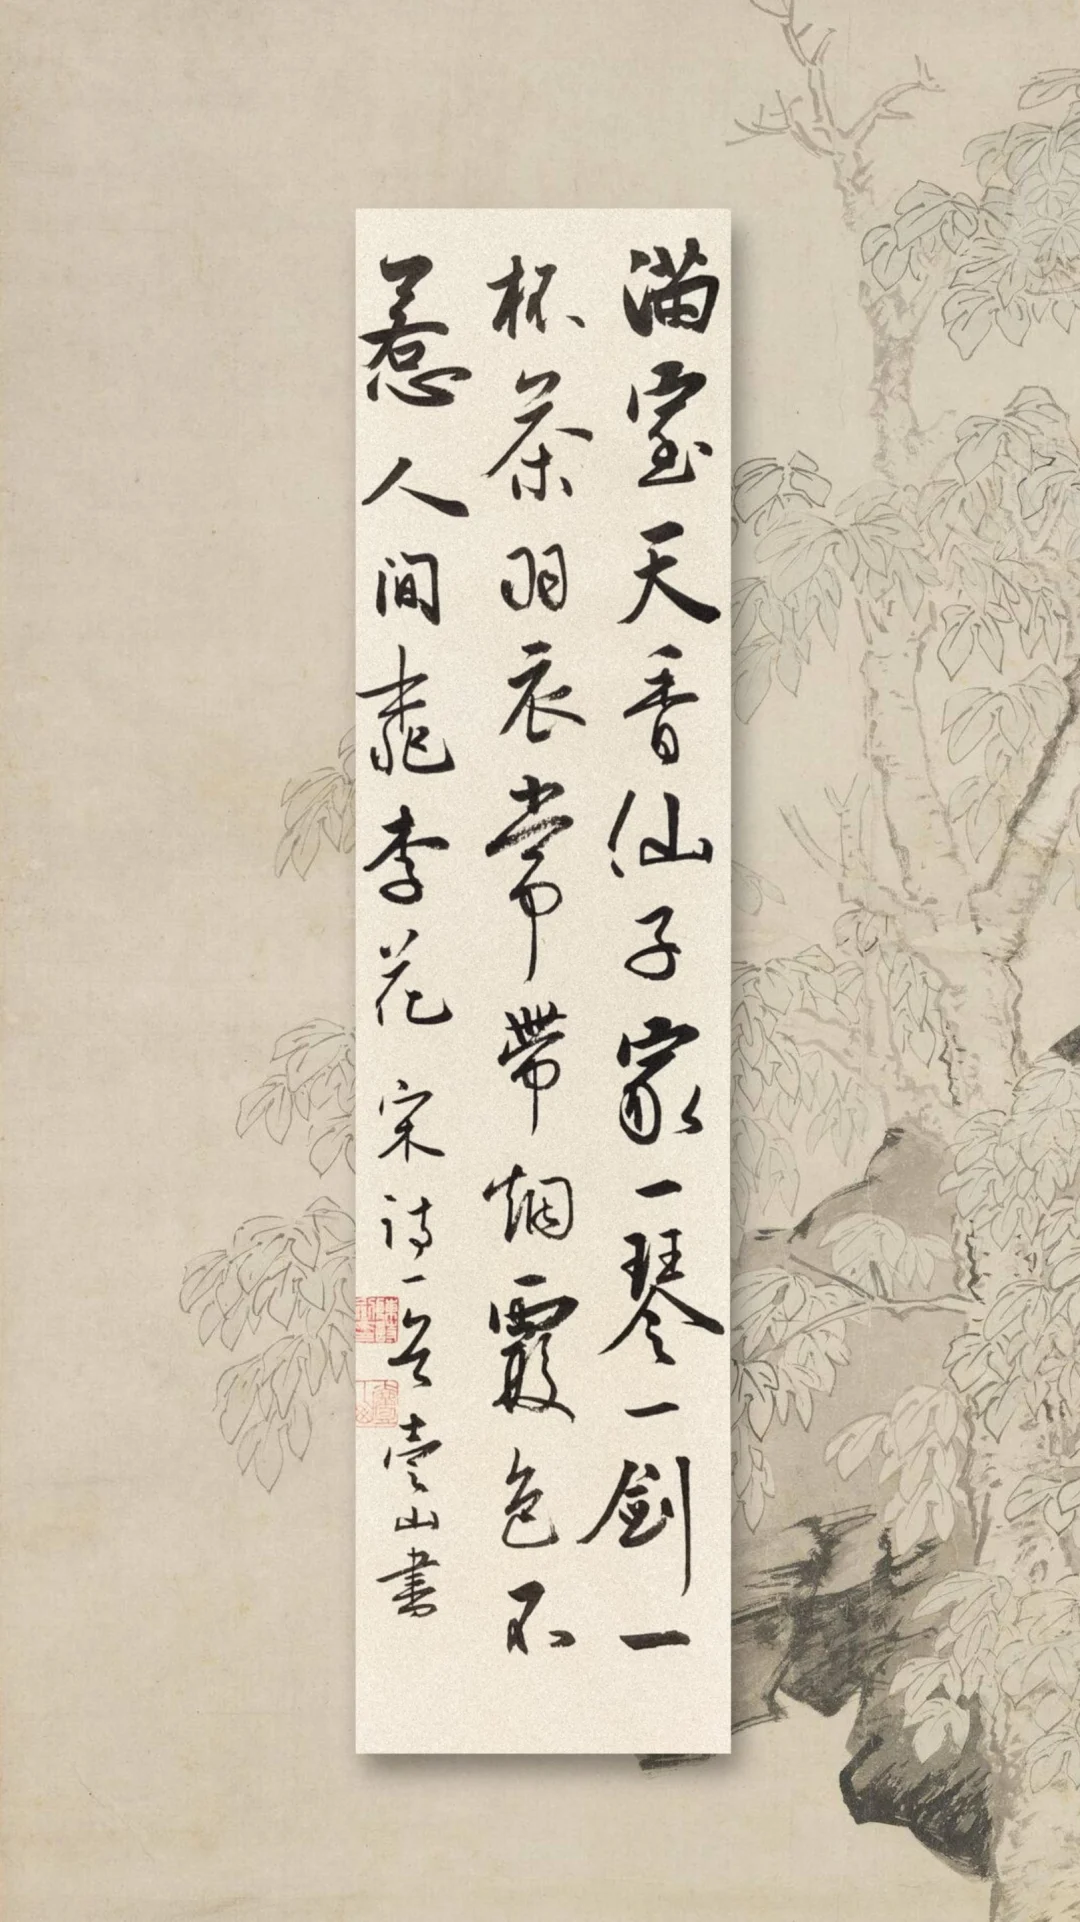 满室天香仙子家一琴一剑一
杯茶羽衣常带烟霞色不
惹人间桃李花 宋诗一首 壶山书